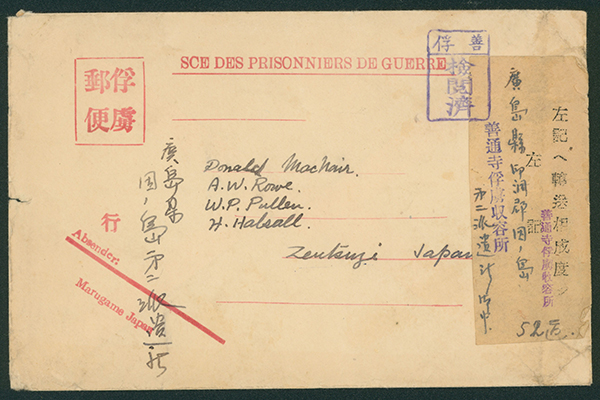 SCE DES PRISONNIERS DE GUERRE
俘虜
郵便
善
俘
検閲濟
Donald MacNair.
A.W. Rowe.
W.P. Pullen.
H. Halsall.
Zentsuji Japan
行
Absender:
Marugame Japan
廣島県
因ノ島第二派遣所
左記ヘ轉送相成度シ
左記
廣島縣御調郡因ノ島
第二派遣所
善通寺俘虜収容所
善通寺俘虜収容所
52